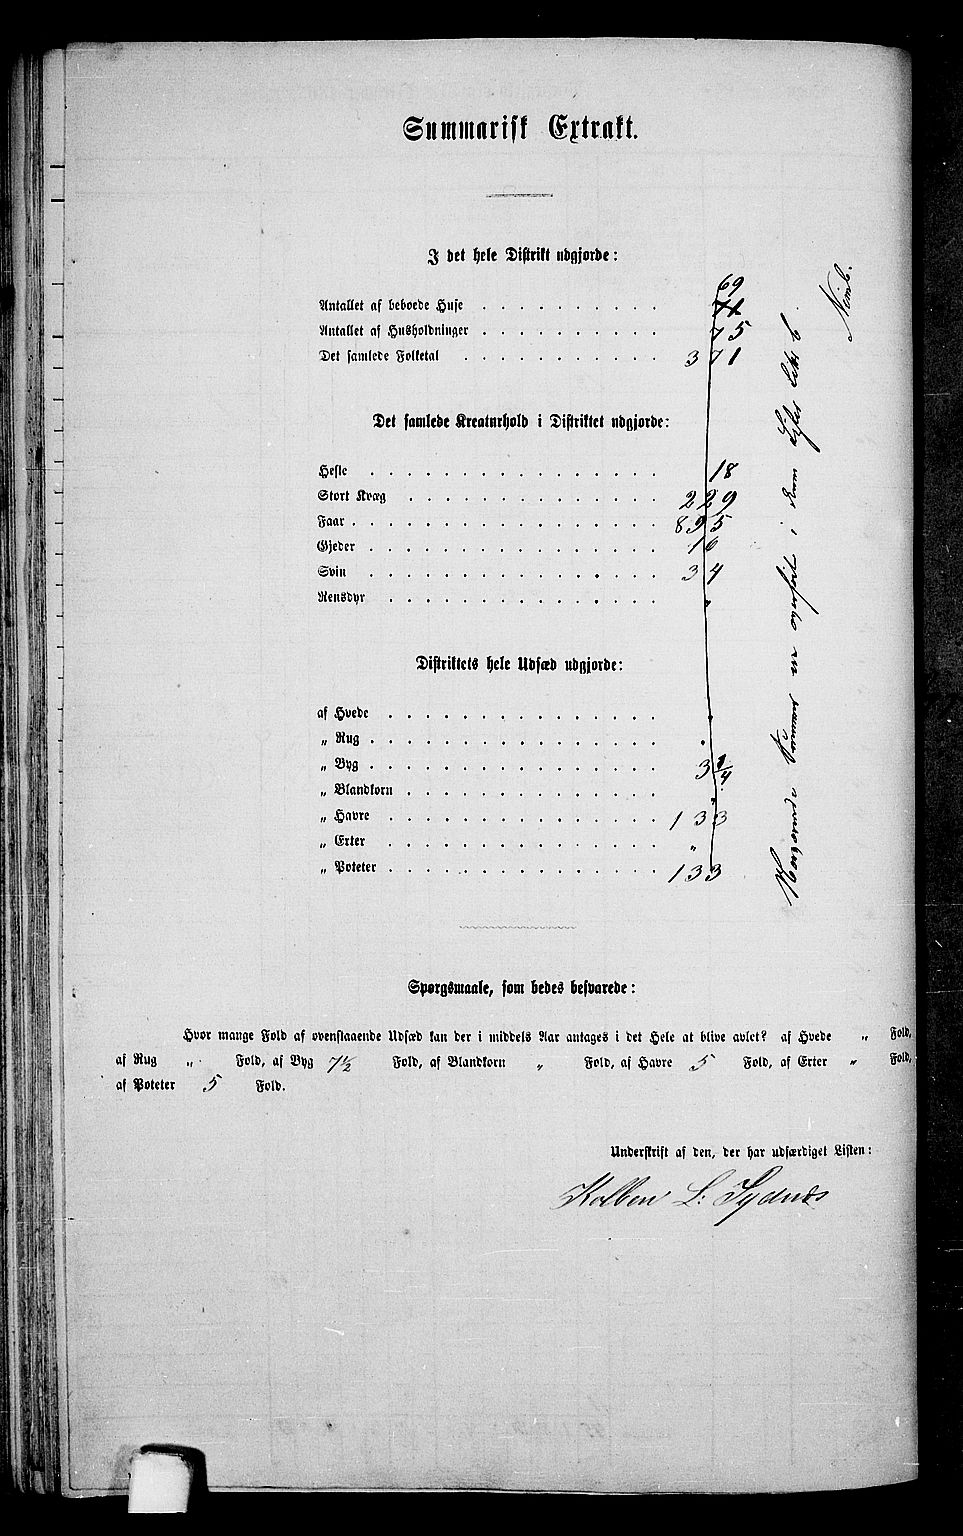 Summarisk Extrakt.
I det hele Distrikt udgjorde:
69
Antallet af beboede Huse
Antallet af Husholdninger 75
Det samlede Folketal 371
Det samlede Kreaturhold i Distriktet udgjorde:
Heste 18
Stort Kvæg 229
Faar 895
Gjeder 16
Svin 34
Rensdyr "
Distriktets hele Udsæd udgjorde:
af Hvede "
„ Rug "
„ Byg 3 1/4
„ Blandkorn "
„ Havre 133
„ Erter "
„ Poteter 133
Spørgsmaale, som bedes besvarede:
Hvor mange Fold af ovenstaaende Udsæd kan der i middels Aar antages i det Hele at blive avlet? af Hvede " Fold,
af Rug " Fold, af Byg 7 1/2 Fold, af Blandkorn " Fold, af Havre 5 Fold, af Erter " Fold,
af Poteter 5 Fold.
Underskrift af den, der har udfærdiget Listen:
Kolben L: Sydnæs